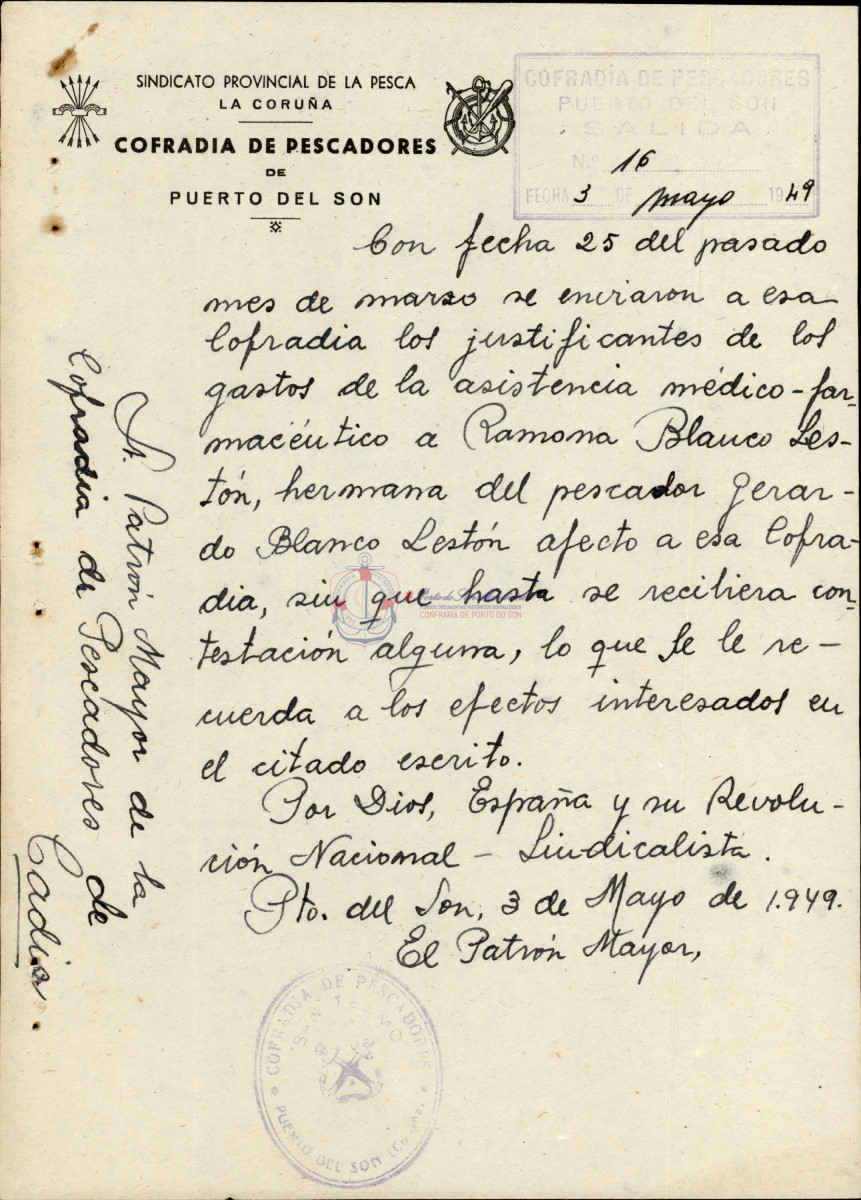 SINDICATO PROVINCIAL DE LA PESCA
LA CORUÑA
COFRADIA DE PESCADORES
DE
PUERTO DEL SON
COFRADÍA DE PESCADORES
PUERTO DEL SON
SALIDA
N.º 16
FECHA 3 DE Mayo 1949
Con fecha 25 del pasado
mes de marzo se enviaron a esa
Cofradia los justificantes de los
gastos de la asistencia médico-far-
macéutico a Ramona Blanco Les-
tón, hermana del pescador Gerar-
do Blanco Lestón afecto a esa Cofra-
dia, sin que hasta se recibiera con-
testación alguna, lo que se le re-
cuerda a los efectos interesados en
el citado escrito.
Por Dios, España y su Revolu-
ción Nacional - Sindicalista.
Pto. del Son, 3 de Mayo de 1.949.
El Patrón Mayor,
Sr. Patrón Mayor de la
Cofradia de Pescadores de
Cadiz
COFRADIA DE PESCADORES
"SAN TELMO"
PUERTO DEL SON
CONFRARÍA DE PORTO DO SON